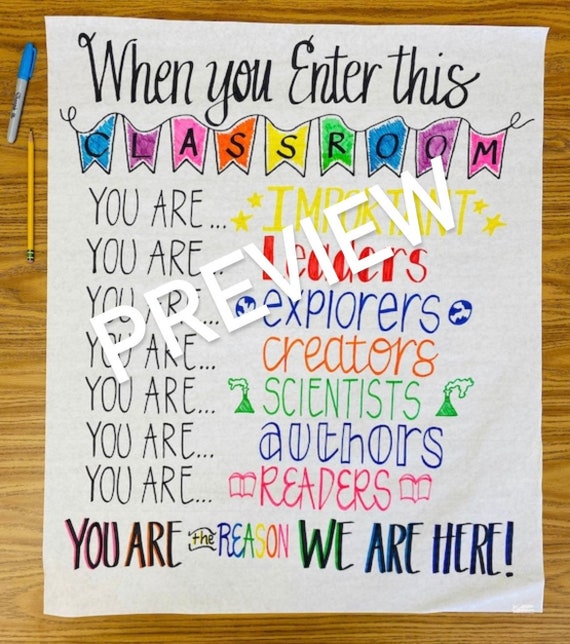 When you Enter this
CLASSROOM
YOU ARE... IMPORTANT
YOU ARE... Leaders
YOU ARE... explorers
YOU ARE... creators
YOU ARE... SCIENTISTS
YOU ARE... authors
YOU ARE... READERS
YOU ARE the REASON WE ARE HERE!
PREVIEW